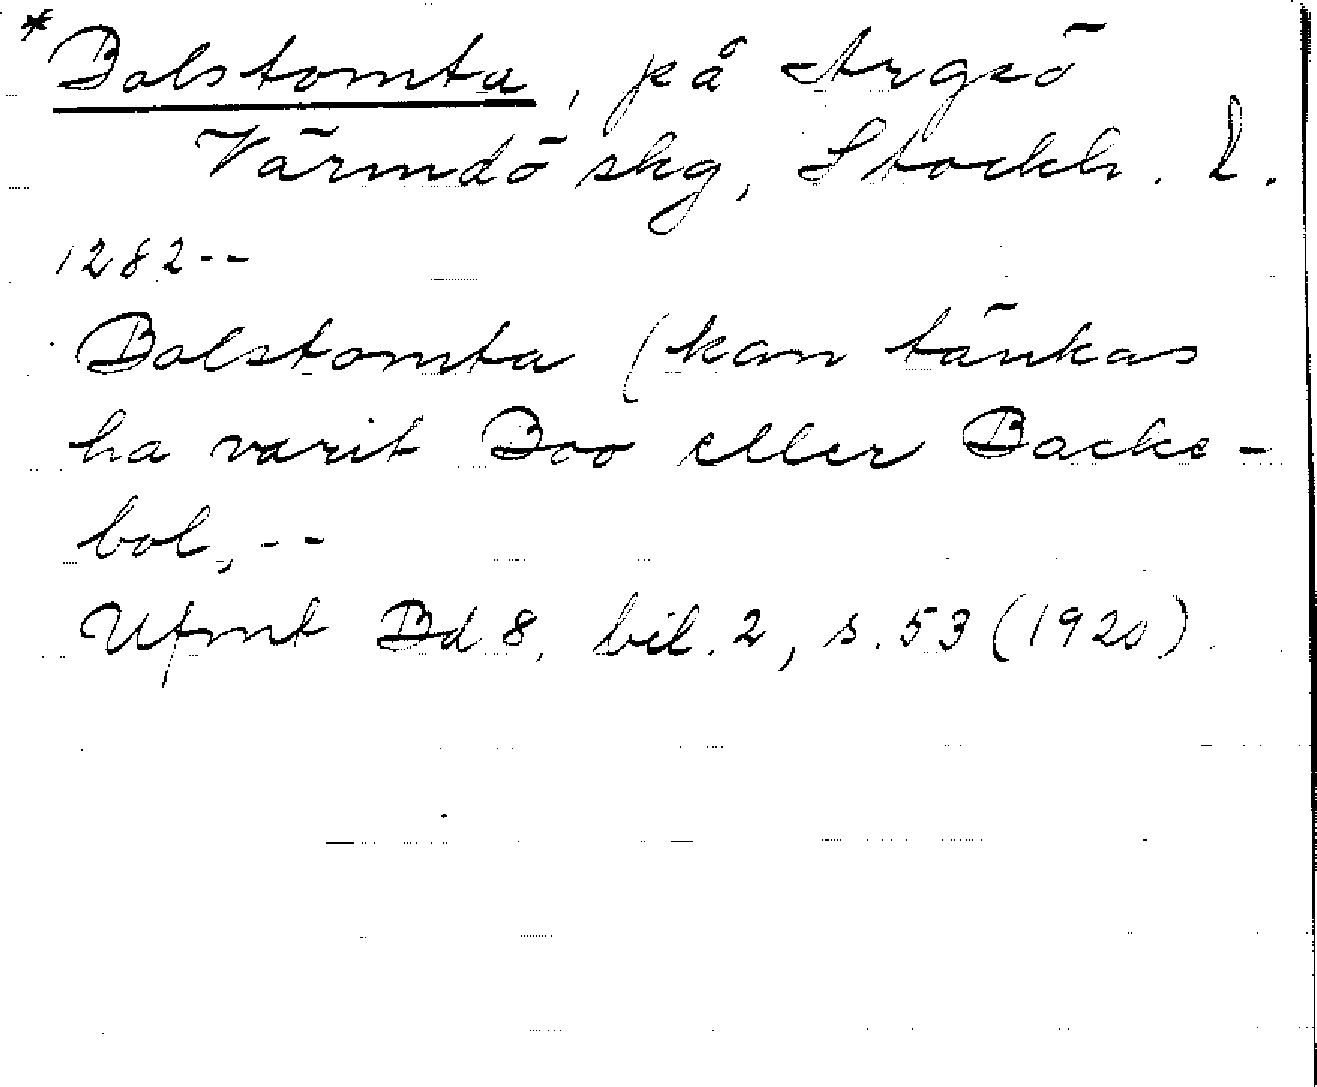 *Bolstomta, på Argsö
Värmdö skg, Stockh. L.
1282--
Bolstomta (kan tänkas
ha varit Boo eller Backe-
bol, --
Ufmt Bd 8, bil. 2, s. 53 (1920)